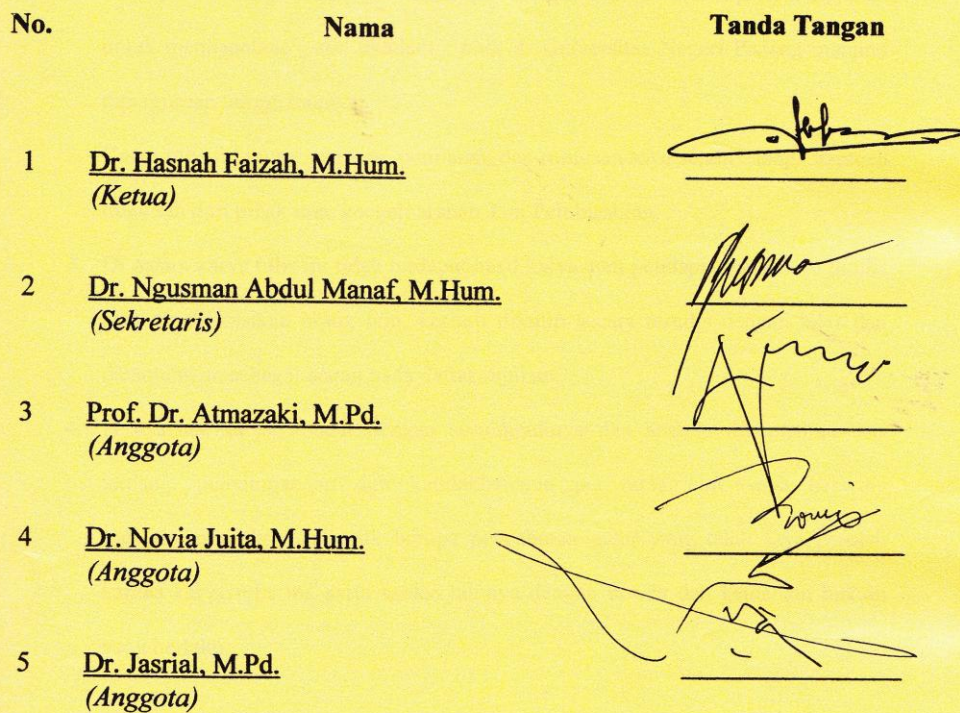 No. Nama Tanda Tangan
1 Dr. Hasnah Faizah, M.Hum.
(Ketua)
2 Dr. Ngusman Abdul Manaf, M.Hum.
(Sekretaris)
3 Prof. Dr. Atmazaki, M.Pd.
(Anggota)
4 Dr. Novia Juita, M.Hum.
(Anggota)
5 Dr. Jasrial, M.Pd.
(Anggota)